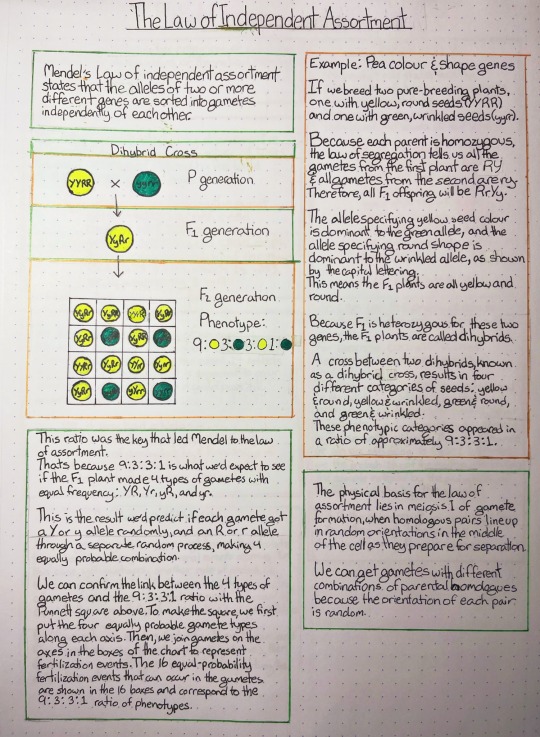 The Law of Independent Assortment
Mendel's Law of independent assortment
states that the alleles of two or more
different genes are sorted into gametes
independently of each other.
Dihybrid Cross
YYRR x yyrr P generation
YyRr F1 generation
F2 generation
Phenotype:
9: 3: 3: 1:
This ratio was the key that led Mendel to the law
of assortment.
Thats because 9:3:3:1 is what we'd expect to see
if the F1 plant made 4 types of gametes with
equal frequency: YR, Yr, yR, and yr.
This is the result we'd predict if each gamete got
a Y or y allele randomly, and an R or r allele
through a separate random process, making 4
equally probable combination.
We can confirm the link between the 4 types of
gametes and the 9:3:3:1 ratio with the
Punnett square above. To make the square, we first
put the four equally probable gamete types
along each axis. Then, we join gametes on the
axes in the boxes of the chart to represent
fertilization events. The 16 equal-probability
fertilization events that can occur in the gametes
are shown in the 16 boxes and correspond to the
9:3:3:1 ratio of phenotypes.
Example: Pea colour & shape genes
If we breed two pure-breeding plants,
one with yellow, round seeds (YYRR)
and one with green, wrinkled seeds (yyrr).
Because each parent is homozygous,
the law of segregation tells us all the
gametes from the first plant are RY
& all gametes from the second are ry.
Therefore, all F1 offspring will be RrYy.
The allele specifying yellow seed colour
is dominant to the green allele, and the
allele specifying round shape is
dominant to the wrinkled allele, as shown
by the capital lettering.
This means the F1 plants are all yellow and
round.
Because F1 is heterozygous for these two
genes, the F1 plants are called dihybrids.
A cross between two dihybrids, known
as a dihybrid cross, results in four
different categories of seeds: yellow
& round, yellow & wrinkled, green & round,
and green & wrinkled.
These phenotypic categories appeared in
a ratio of approximately 9:3:3:1.
The physical basis for the law of
assortment lies in meiosis I of gamete
formation, when homologous pairs line up
in random orientations in the middle
of the cell as they prepare for separation.
We can get gametes with different
combinations of parental homologues
because the orientation of each pair
is random.